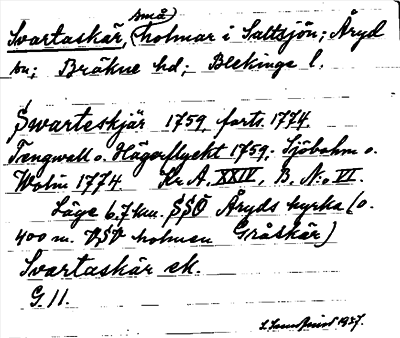 Svartaskär, (små) holmar i Saltsjön; Åryd
sn; Bräkne hd; Blekinge l.
Swarteskjär 1759, forts. 1774
Tengwall o. Hägerflyckt 1759; Sjöbohm o.
Wolin 1774 Kr. A. XXIV, B. No. VI.
Läge 6.7 km. SSÖ Åryds kyrka (o.
400 m. VSV holmen Gråskär)
Svartaskär ek.
G. 11.
1937.